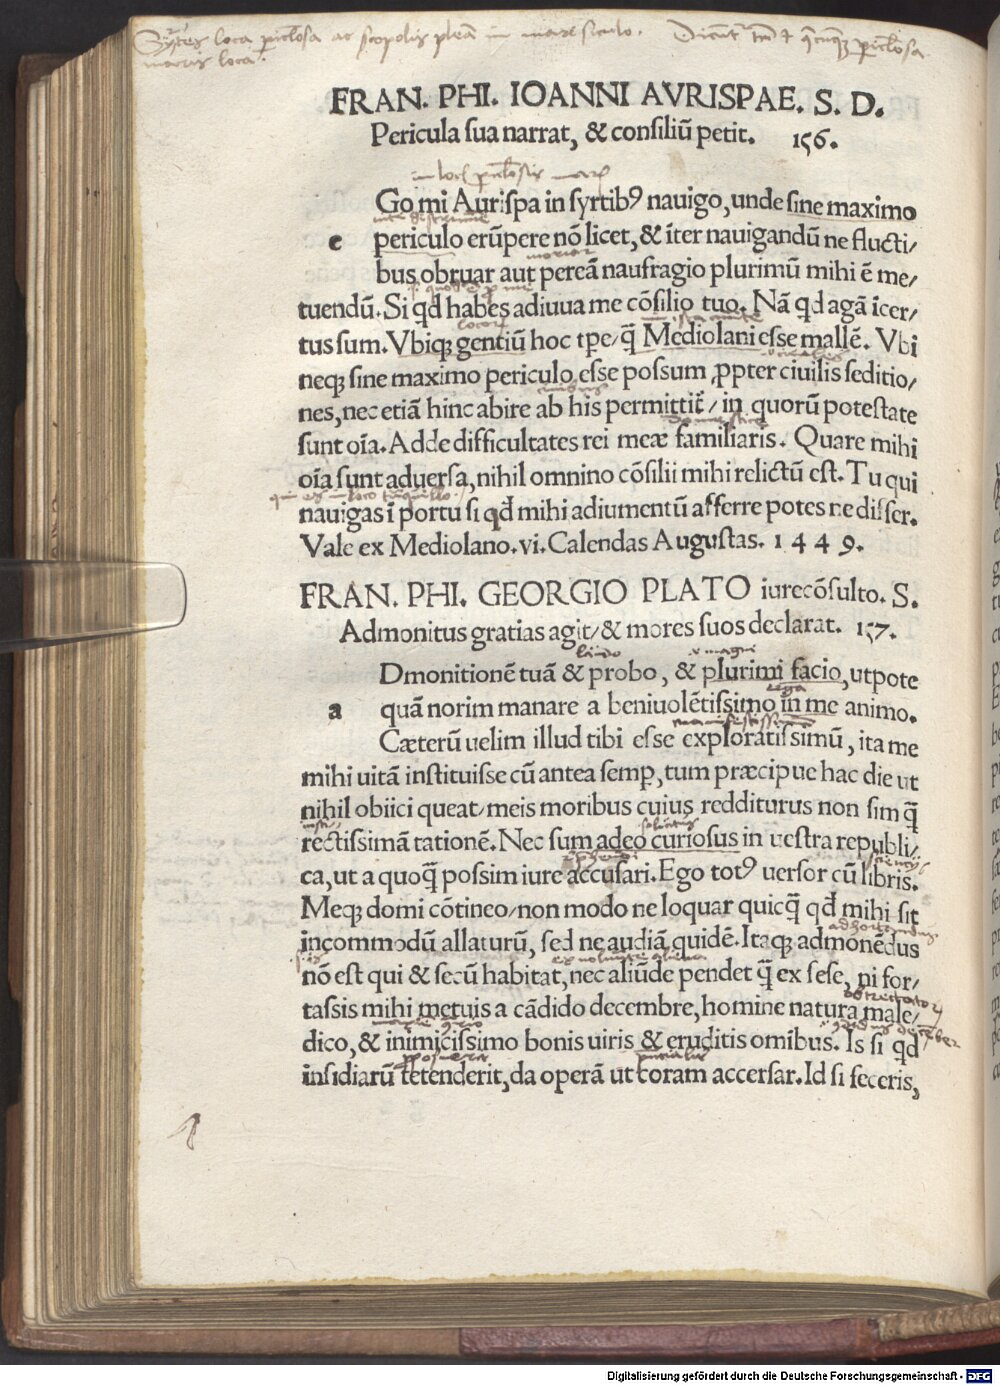 Syrtes loca periclosa ac scopolis plea in mare siculo. Dicunt
maris loca.
FRAN. PHI. IOANNI AVRISPAE. S. D.
Pericula sua narrat, & consiliū petit. 156.
Go mi Aurispa in syrtibꝰ nauigo, unde sine maximo
e periculo erūpere nō licet, & īter nauigandū ne flucti/
bus obruar aut pereā naufragio plurimū mihi ē me/
tuendū. Si qd habes adiuua me cōsilio tuo. Nā qd agā īcer/
tus sum. Vbiqꝫ gentiū hoc tpe/ q̄ Mediolani esse mallē. Vbi
neqꝫ sine maximo periculo esse possum ꝓpter ciuilis seditio/
nes, nec etiā hinc abire ab his permittit̄/ in quorū potestate
sunt oīa. Adde difficultates rei meæ familiaris. Quare mihi
oīa sunt aduersa, nihil omnino cōsilii mihi relictū est. Tu qui
nauigas ī portu si qd mihi adiumentū afferre potes ne differ.
Vale ex Mediolano. vi. Calendas Augustas. 1449.
FRAN. PHI. GEORGIO PLATO iurecōsulto. S.
Admonitus gratias agit/ & mores suos declarat. 157.
magni
Dmonitionē tuā & probo, & plurimi facio, utpote
erga
a quā norim manare a beniuolētissimo in me animo.
Cæterū uelim illud tibi esse exploratissimū, ita me
mihi uitā instituisse cū antea semp, tum præcipue hac die ut
nihil obiici queat/ meis moribus cuius redditurus non sim q̄
rectissimā rationē. Nec sum adeo curiosus in uestra republi/
ca, ut a quoq̄ possim iure accusari. Ego totꝰ uersor cū libris.
Meqꝫ domi cōtineo/ non modo ne loquar quicq̄ qd mihi sit
incommodū allaturū, sed ne audiā quidē. Itaqꝫ admonēdus
nō est qui & secū habitat, nec aliūde pendet q̄ ex sese, ni for/
tassis mihi metuis a cādido decembre, homine natura male/
dico, & inimicissimo bonis uiris & eruditis omibus. Is si qd
insidiarū tetenderit, da operā ut coram accersar. Id si feceris,
Digitalisierung gefördert durch die Deutsche Forschungsgemeinschaft - DFG